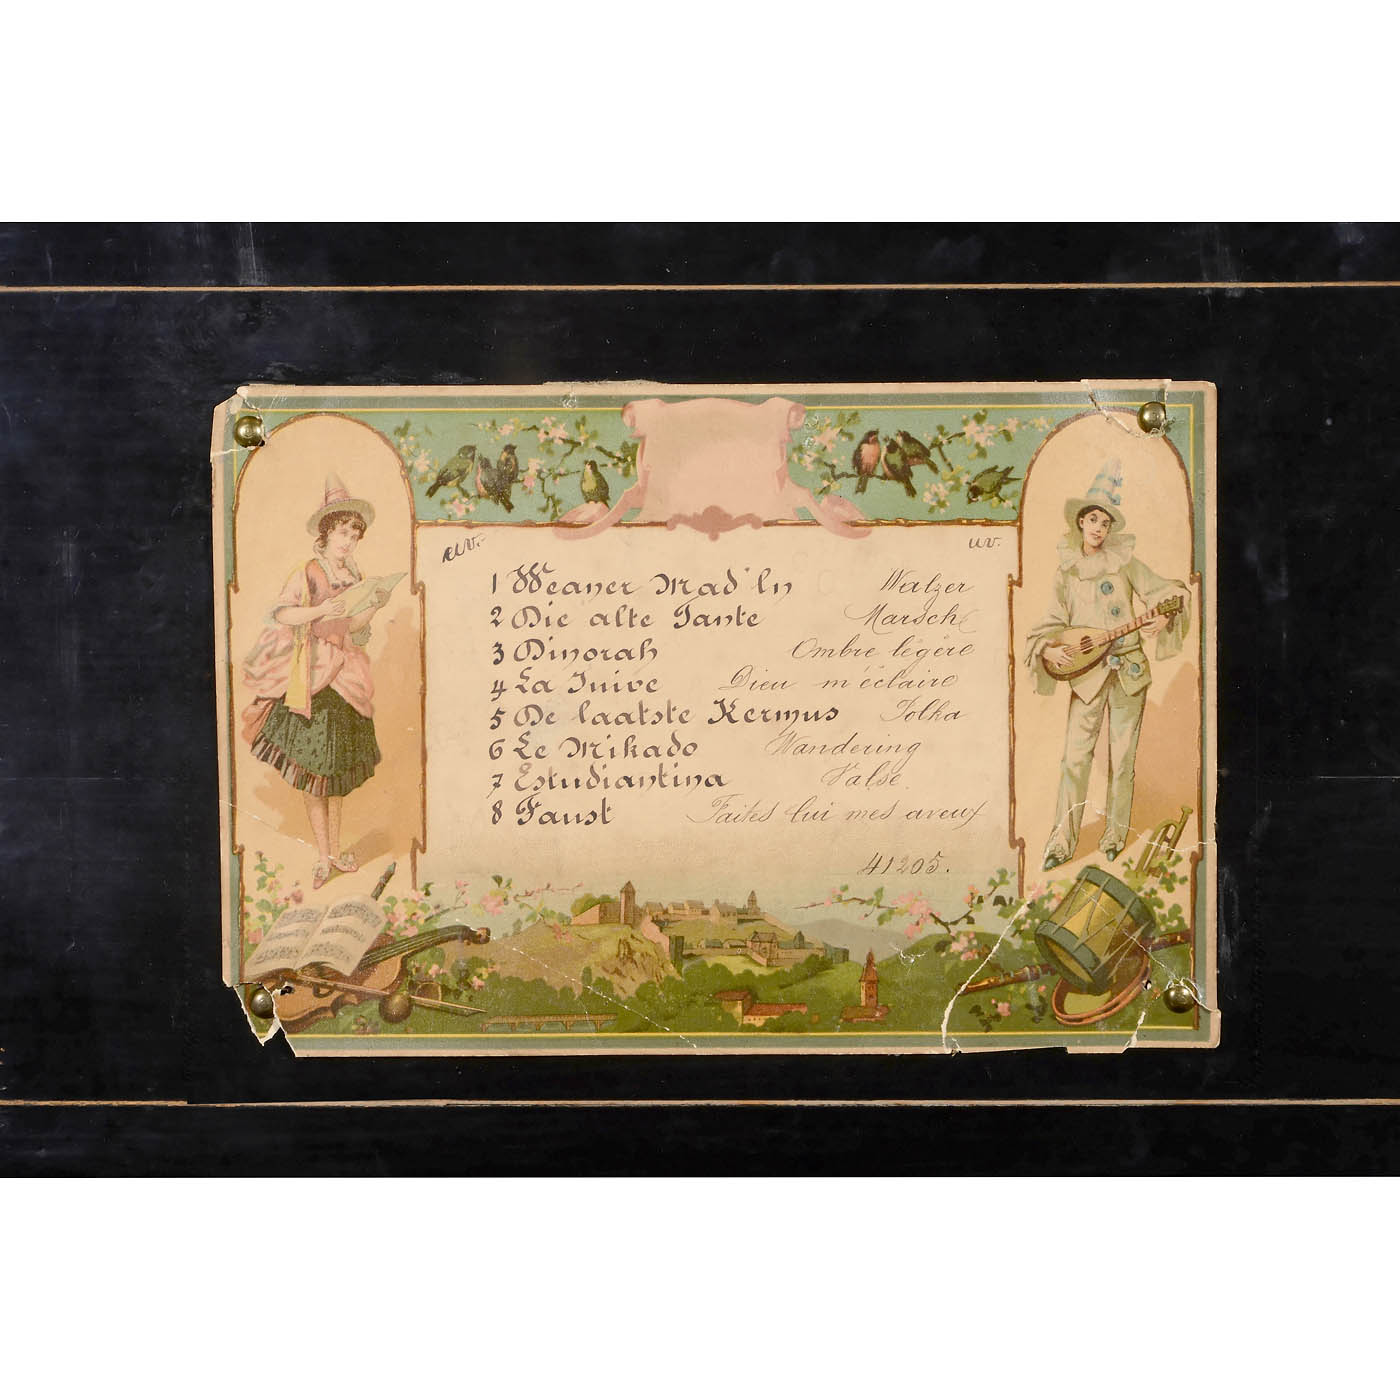 uv. uv.
1 Weaner Mad'ln Walzer
2 Die alte Tante Marsch
3 Dinorah Ombre légére
4 La Juive Dieu m'éclaire
5 De laatste Kermus Polka
6 Le Mikado Wandering
7 Estudiantina Valse
8 Faust Faites lui mes aveux
41205.